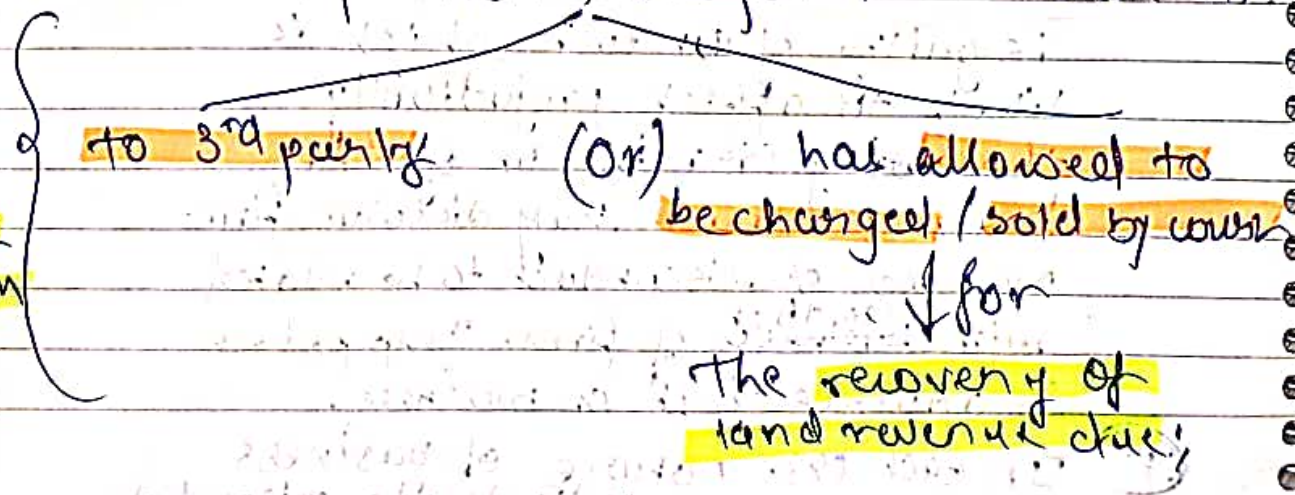 to 3rd party (Or) has allowed to
be charged / sold by court
↓ for
The recovery of
land revenue due;